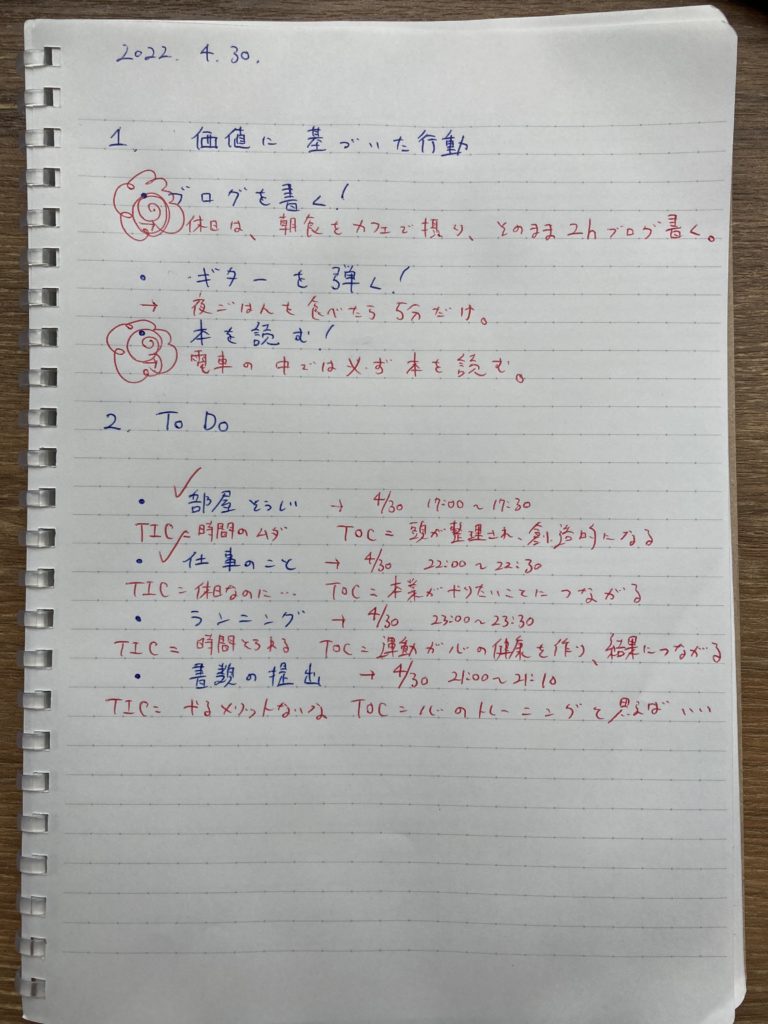 2022. 4. 30.
1. 価値に基づいた行動
・ブログを書く!
→ 休日は、朝食をカフェで摂り、そのまま2hブログ書く。
・ギターを弾く!
→ 夜ごはんを食べたら5分だけ。
・本を読む!
→ 電車の中では必ず本を読む。
2. To Do
・部屋そうじ → 4/30 17:00〜17:30
TIC=時間のムダ TOC=頭が整理され、創造的になる
・仕事のこと → 4/30 22:00〜22:30
TIC=休日なのに… TOC=本業がやりたいことにつながる
・ランニング → 4/30 23:00〜23:30
TIC=時間とられる TOC=運動が心の健康を作り、結果につながる
・書類の提出 → 4/30 21:00〜21:10
TIC=やるメリットないな TOC=心のトレーニングと思えばいい